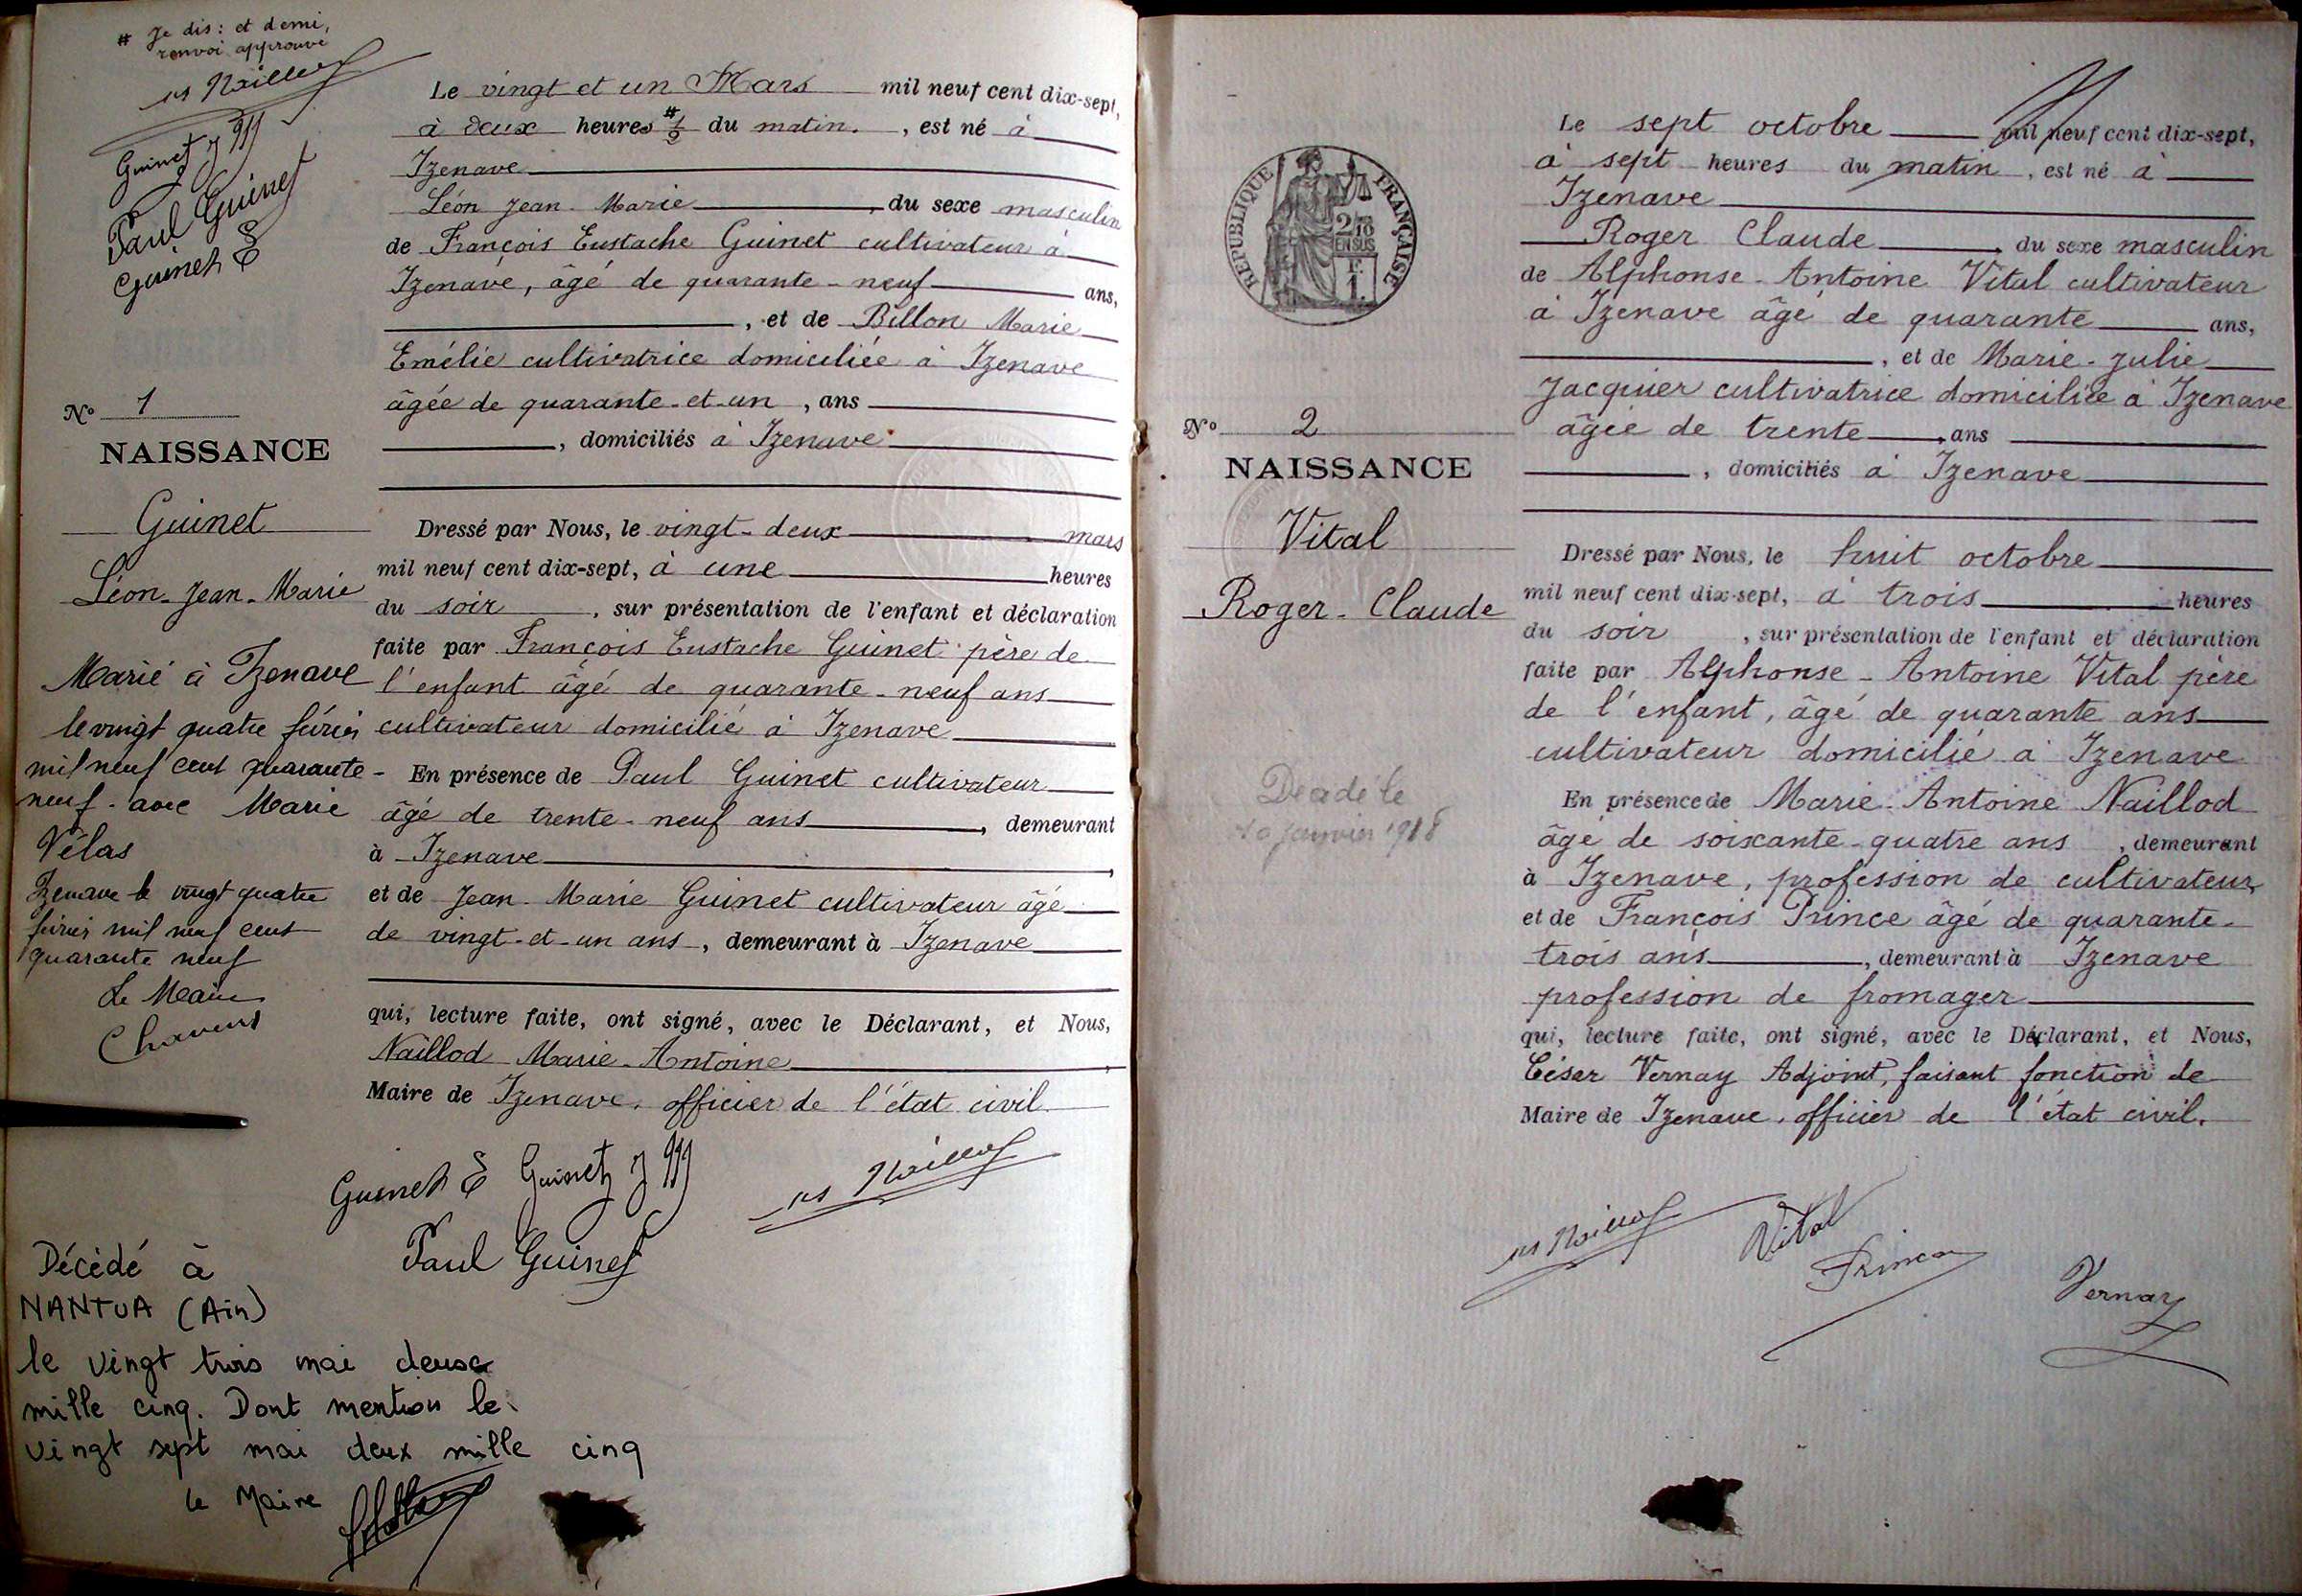 # Je dis : et demi,
renvoi approuvé
Guinet J M
Paul Guinet
Guinet E
Le vingt et un Mars mil neuf cent dix-sept,
à deux heures # 1/2 du matin. , est né à
Izenave
Léon Jean-Marie , du sexe masculin
de François Eustache Guinet cultivateur à
Izenave, âgé de quarante-neuf ans,
, et de Billon Marie
Emélie cultivatrice domiciliée à Izenave
âgée de quarante-et-un , ans
, domiciliés à Izenave
Nº 1
NAISSANCE
Guinet
Léon-Jean-Marie
Dressé par Nous, le vingt-deux mars
mil neuf cent dix-sept, à une heures
du soir , sur présentation de l'enfant et déclaration
faite par François Eustache Guinet père de
l'enfant âgé de quarante-neuf ans
cultivateur domicilié à Izenave
En présence de Paul Guinet cultivateur
âgé de trente-neuf ans , demeurant
à Izenave ,
et de Jean-Marie Guinet cultivateur âgé
de vingt-et-un ans , demeurant à Izenave
qui, lecture faite, ont signé, avec le Déclarant, et Nous,
Naillod Marie-Antoine ,
Maire de Izenave, officier de l'état civil
Marié à Izenave
le vingt quatre février
mil neuf cent quarante-
neuf - avec Marie
Vélas
Izenave le vingt quatre
février mil neuf cent
quarante neuf
Le Maire
Guinet E Guinet J M
Paul Guinet
Décédé à
NANTUA (Ain)
le vingt trois mai deux
mille cinq. Dont mention le
vingt sept mai deux mille cinq
le Maire
RÉPUBLIQUE FRANÇAISE
2/10
EN SUS
1 F.
Le sept octobre mil neuf cent dix-sept,
à sept heures du matin , est né à
Izenave
Roger Claude , du sexe masculin
de Alphonse-Antoine Vital cultivateur
à Izenave âgé de quarante ans,
, et de Marie-Julie
Jacquier cultivatrice domiciliée à Izenave
âgée de trente , ans
, domiciliés à Izenave
Nº 2
NAISSANCE
Vital
Roger-Claude
Décédé le
10 janvier 1918
Dressé par Nous, le huit octobre
mil neuf cent dix-sept, à trois heures
du soir , sur présentation de l'enfant et déclaration
faite par Alphonse-Antoine Vital père
de l'enfant, âgé de quarante ans
cultivateur domicilié à Izenave
En présence de Marie-Antoine Naillod
âgé de soixante-quatre ans , demeurant
à Izenave, profession de cultivateur,
et de François Prince âgé de quarante-
trois ans , demeurant à Izenave
profession de fromager
qui, lecture faite, ont signé, avec le Déclarant, et Nous,
César Vernay Adjoint, faisant fonction de
Maire de Izenave, officier de l'état civil.
Vital
Prince
Vernay